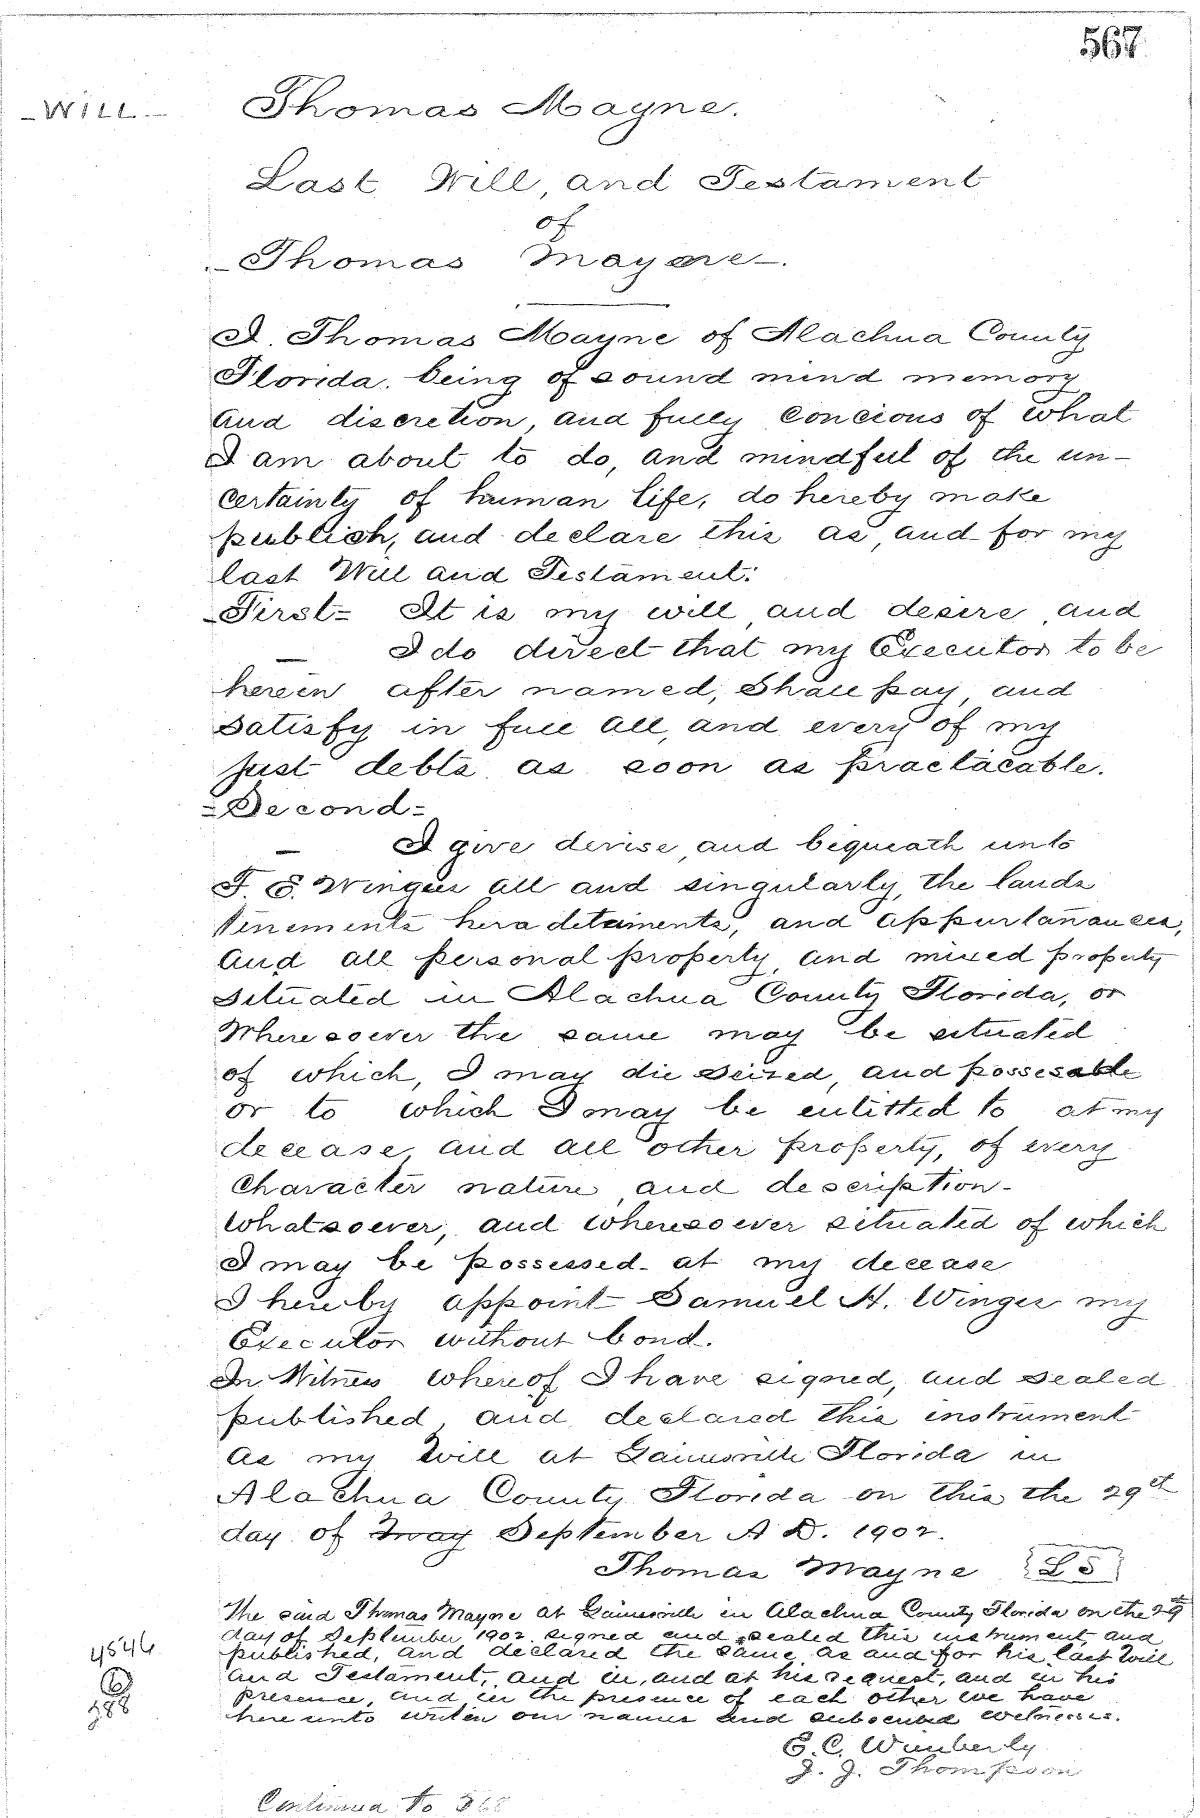 567
-WILL-
Thomas Mayne.
Last Will, and Testament
of
-Thomas Mayne-.
I. Thomas Mayne of Alachua County
Florida. being of sound mind memory
and discretion, and fully concious of what
I am about to do, and mindful of the un-
certainty of human life, do hereby make
publish, and declare this as, and for my
last Will and Testament:
-First= It is my will, and desire, and
I do direct that my Executor to be
herein after named, shall pay, and
satisfy in full all, and every of my
just debts as soon as practacable.
=Second=
I give devise, and bequeath unto
all and singularly, the lands
tenements heraditaments, and appurtanances,
and all personal property, and mixed property
situated in Alachua County Florida, or
Wheresoever the same may be situated
of which, I may die seized, and
or to which I may be entitled to at my
decease, and all other property, of every
character nature, and description-
whatsoever, and wheresoever situated of which
I may be possessed- at my decease
I hereby appoint Samuel H. Winges my
Executor without bond.
In Witness whereof I have signed, and sealed
published, and declared this instrument
as my will at Gainesville Florida in
Alachua County Florida on this the 29th
day of May September A D. 1902.
Thomas Mayne L S
The said Thomas Mayne at Gainesville in Alachua County Florida on the 29th
day of September 1902 signed and sealed this instrument, and
published, and declared the same as and for his last Will
and Testament, and in, and at his request, and in his
presence, and in the presence of each other we have
hereunto writen our names and subscribed witnesses.
E. C. Wimberly
J. J. Thompson
4546
6
388
Continued to 568